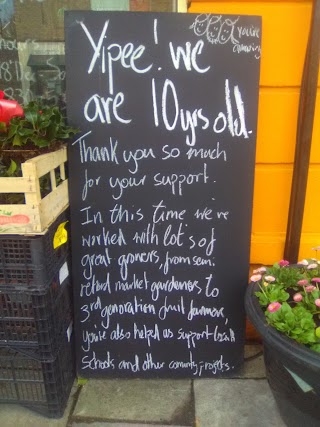 Yipee! we
are 10yrs old.
you're
amazing
Thank you so much
for your support.
In this time we've
worked with lot's of
great growers, from semi
retired market gardeners to
3rd generation fruit farmers,
you've also helped us support local
schools and other comunity projects.